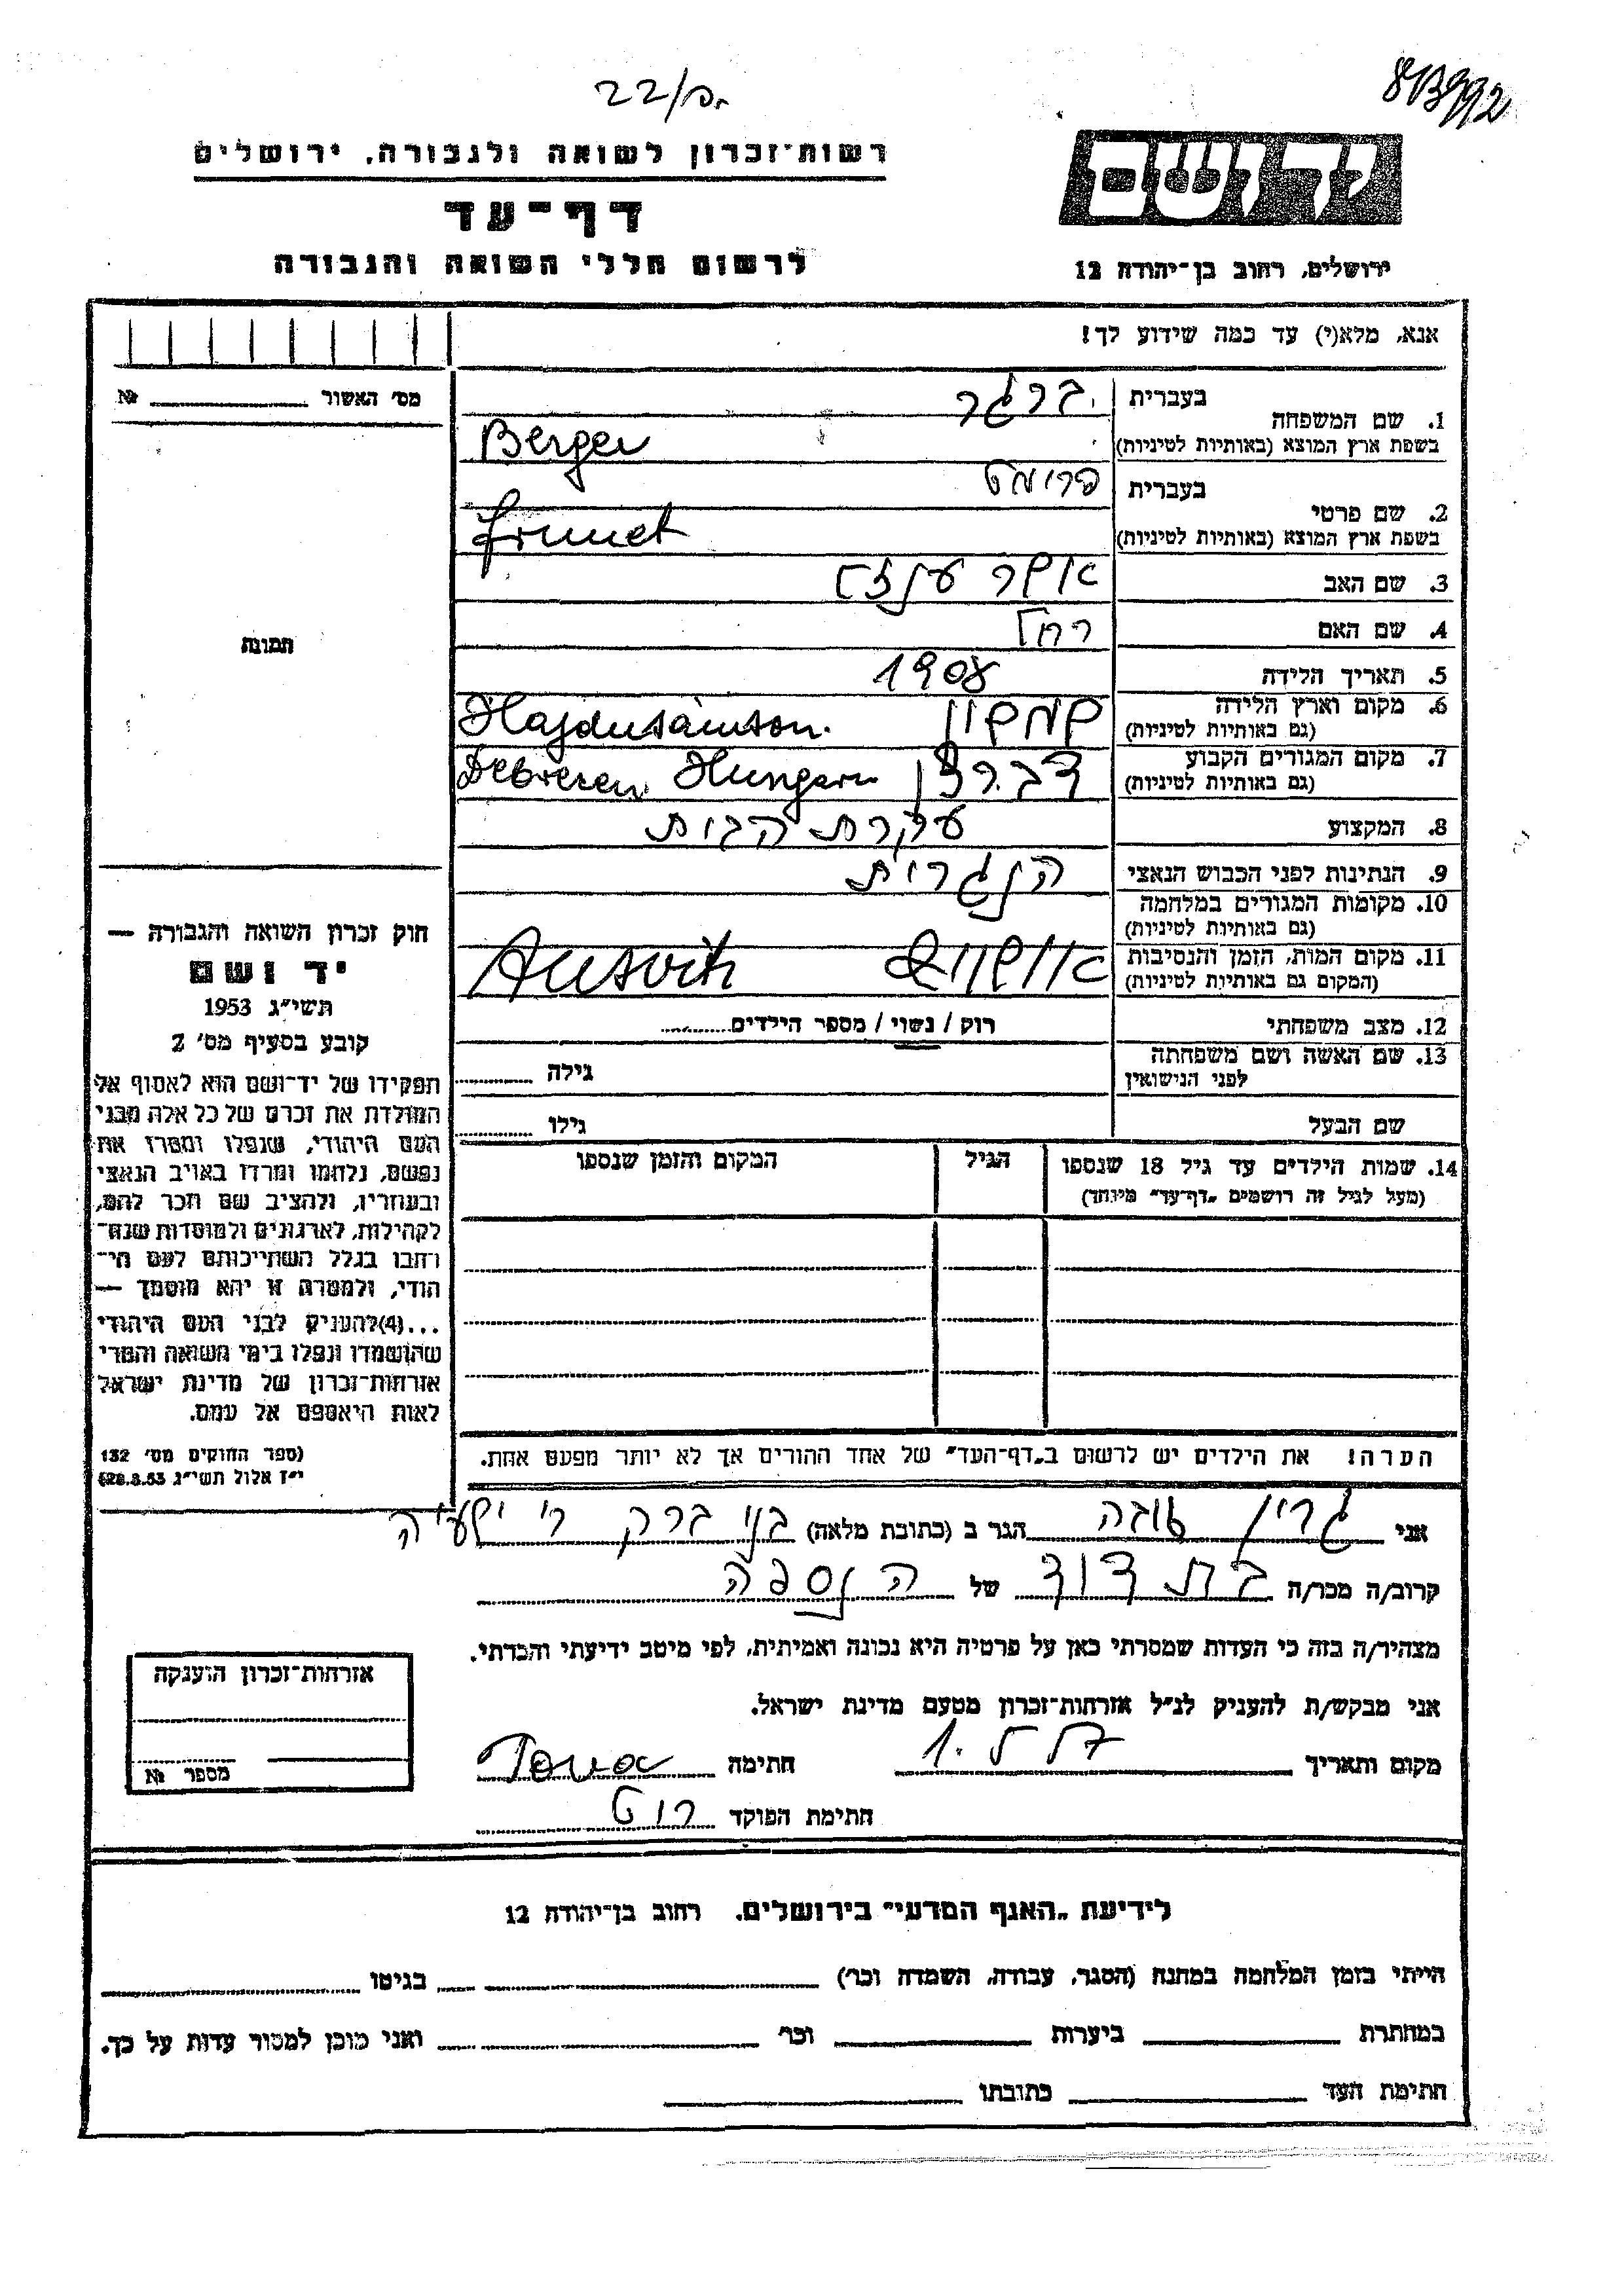 22/פ.
רשות־זכרון לשואה ולגבורה, ירושלים
יד ושם
דף־עד
לרשום חללי השואה והגבורה
ירושלים, רחוב בן־יהודה 12
אנא, מלא(י) עד כמה שידוע לך!
מס׳ האשור № 
1. שם המשפחה
בעברית ברגר
בשפת ארץ המוצא (באותיות לטיניות) Berger
2. שם פרטי
בעברית פרומט
בשפת ארץ המוצא (באותיות לטיניות) frumet
3. שם האב אשר
4. שם האם רחל
5. תאריך הלידה 1908
6. מקום וארץ הלידה
(גם באותיות לטיניות) שמשון Hajdusámson.
7. מקום המגורים הקבוע
(גם באותיות לטיניות) דברצן Debrecen Hungary
8. המקצוע עקרת הבית
9. הנתינות לפני הכבוש הנאצי הנגרית
10. מקומות המגורים במלחמה
(גם באותיות לטיניות)
11. מקום המות, הזמן והנסיבות
(המקום גם באותיות לטיניות) אוישויץ Ausvitz
12. מצב משפחתי רוק / נשוי / מספר הילדים
13. שם האשה ושם משפחתה
לפני הנישואין גילה
שם הבעל גילו
14. שמות הילדים עד גיל 18 שנספו הגיל המקום והזמן שנספו
(מעל לגיל זה רושמים „דף־עד״ מיוחד)
הערה! את הילדים יש לרשום ב„דף־העד״ של אחד ההורים אך לא יותר מפעם אחת.
תמונה
חוק זכרון השואה והגבורה —
יד ושם
תשי״ג 1953
קובע בסעיף מס׳ 2
תפקידו של יד־ושם הוא לאסוף אל
המולדת את זכרם של כל אלה מבני
העם היהודי, שנפלו ומסרו את
נפשם, נלחמו ומרדו באויב הנאצי
ובעוזריו, ולהציב שם וזכר להם,
לקהילות, לארגונים ולמוסדות שנח־
רבו בגלל השתייכותם לעם הי־
הודי, ולמטרה זו יהא מוסמך —
...(4)להעניק לבני העם היהודי
שהושמדו ונפלו בימי השואה והמרי
אזרחות־זכרון של מדינת ישראל
לאות היאספם אל עמם.
(ספר החוקים מס׳ 132
י״ז אלול תשי״ג 28.8.53)
אני גרין טובה הגר ב (כתובת מלאה) בני ברק ר׳ ישעיה
קרוב/ה מכר/ה בת דוד של הנספה
מצהיר/ה בזה כי העדות שמסרתי כאן על פרטיה היא נכונה ואמיתית, לפי מיטב ידיעתי והכרתי.
אני מבקש/ת להעניק לנ״ל אזרחות־זכרון מטעם מדינת ישראל.
מקום ותאריך חתימה Tova
חתימת הפוקד רוט
אזרחות־זכרון הוענקה
מספר №
לידיעת „האגף המדעי״ בירושלים, רחוב בן־יהודה 12
הייתי בזמן המלחמה במחנה (הסגר, עבודה, השמדה וכו׳) בגיטו
במחתרת ביערות וכו׳ ואני מוכן למסור עדות על כך.
חתימת העד כתובתו